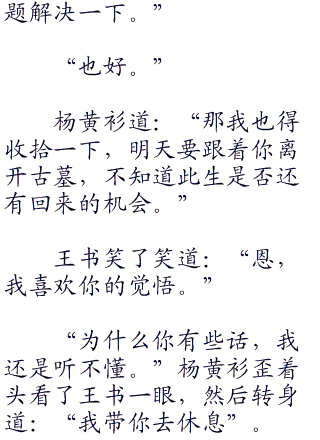 题解决一下。”
“也好。”
杨黄衫道：“那我也得
收拾一下，明天要跟着你离
开古墓，不知道此生是否还
有回来的机会。”
王书笑了笑道：“恩，
我喜欢你的觉悟。”
“为什么你有些话，我
还是听不懂。”杨黄衫歪着
头看了王书一眼，然后转身
道：“我带你去休息”。